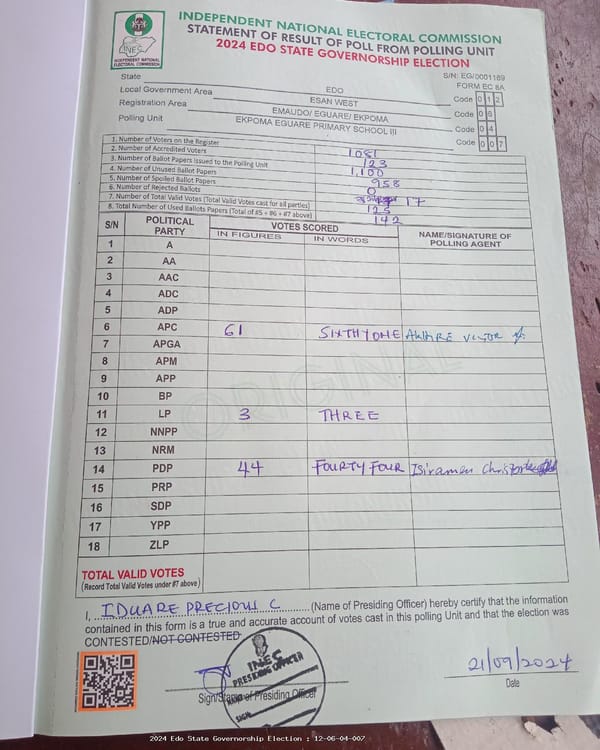 INDEPENDENT NATIONAL ELECTORAL COMMISSION
STATEMENT OF RESULT OF POLL FROM POLLING UNIT
2024 EDO STATE GOVERNORSHIP ELECTION
INEC
INDEPENDENT NATIONAL
ELECTORAL COMMISSION
S/N: EG/0001169
FORM EC 8A
State EDO Code 012
Local Government Area ESAN WEST Code 06
Registration Area EMAUDO/ EGUARE/ EKPOMA Code 04
Polling Unit EKPOMA EGUARE PRIMARY SCHOOL III Code 007
1. Number of Voters on the Register 1081
2. Number of Accredited Voters 123
3. Number of Ballot Papers Issued to the Polling Unit 1,100
4. Number of Unused Ballot Papers 958
5. Number of Spoiled Ballot Papers 0
6. Number of Rejected Ballots 17
7. Number of Total Valid Votes (Total Valid Votes cast for all parties) 125
8. Total Number of Used Ballots Papers (Total of #5 + #6 + #7 above) 142
S/N POLITICAL PARTY VOTES SCORED NAME/SIGNATURE OF POLLING AGENT
IN FIGURES IN WORDS
1 A
2 AA
3 AAC
4 ADC
5 ADP
6 APC 61 SIXTHYONE AKHIRE VICTOR
7 APGA
8 APM
9 APP
10 BP
11 LP 3 THREE
12 NNPP
13 NRM
14 PDP 44 FOURTY FOUR Isiramen
15 PRP
16 SDP
17 YPP
18 ZLP
ORIGINAL
TOTAL VALID VOTES
(Record Total Valid Votes under #7 above)
I, IDUARE PRECIOUS C (Name of Presiding Officer) hereby certify that the information
contained in this form is a true and accurate account of votes cast in this polling Unit and that the election was
CONTESTED/NOT CONTESTED
INEC
PRESIDING OFFICER
SIGN
21/09/2024
Sign/Stamp of Presiding Officer
Date
2024 Edo State Governorship Election : 12-06-04-007